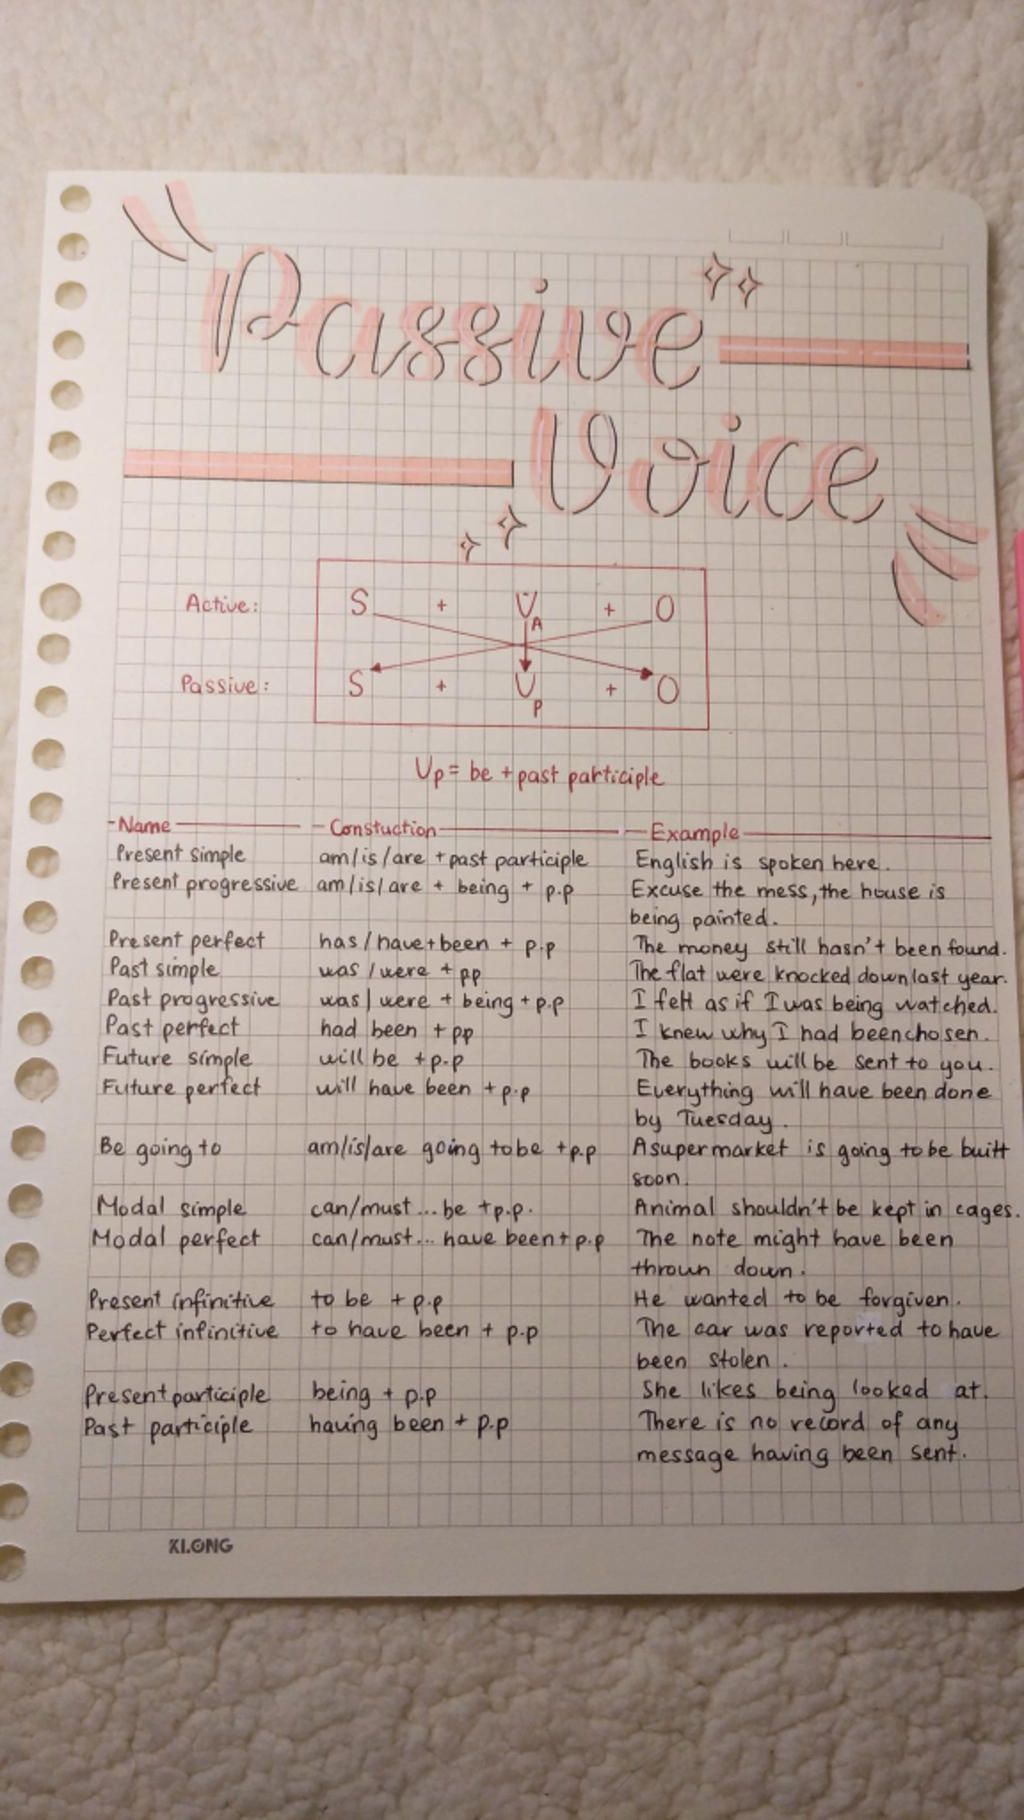 Passive
Voice
Active: S + V A + O
Passive: S + V P + O
Vp = be + past participle
Name Constuction Example
Present simple am/is/are + past participle English is spoken here.
Present progressive am/is/are + being + p.p Excuse the mess, the house is
being painted.
Present perfect has/have + been + p.p The money still hasn't been found.
Past simple was/were + pp The flat were knocked down last year.
Past progressive was/were + being + p.p I felt as if I was being watched.
Past perfect had been + pp I knew why I had been chosen.
Future simple will be + p.p The books will be sent to you.
Future perfect will have been + p.p Everything will have been done
by Tuesday.
Be going to am/is/are going to be + p.p A supermarket is going to be built
soon.
Modal simple can/must... be + p.p. Animal shouldn't be kept in cages.
Modal perfect can/must... have been + p.p The note might have been
thrown down.
Present infinitive to be + p.p He wanted to be forgiven.
Perfect infinitive to have been + p.p The car was reported to have
been stolen.
Present participle being + p.p She likes being looked at.
Past participle having been + p.p There is no record of any
message having been sent.
KLONG